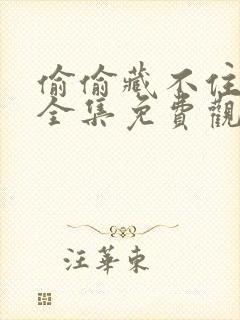 偷偷藏不住
全集免費觀
汪華東